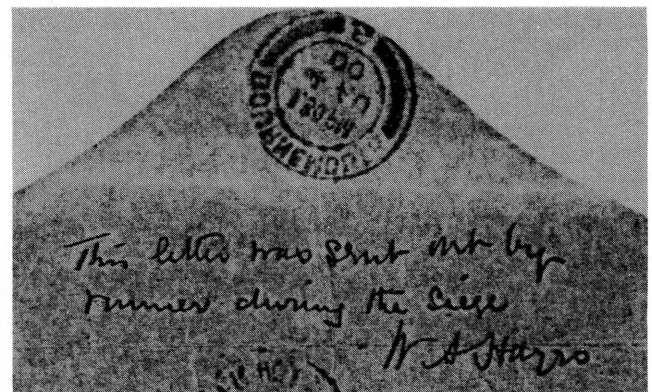 BOURNEMOUTH
3
00
This letter was sent out by
runner during the Siege
W A Hayes